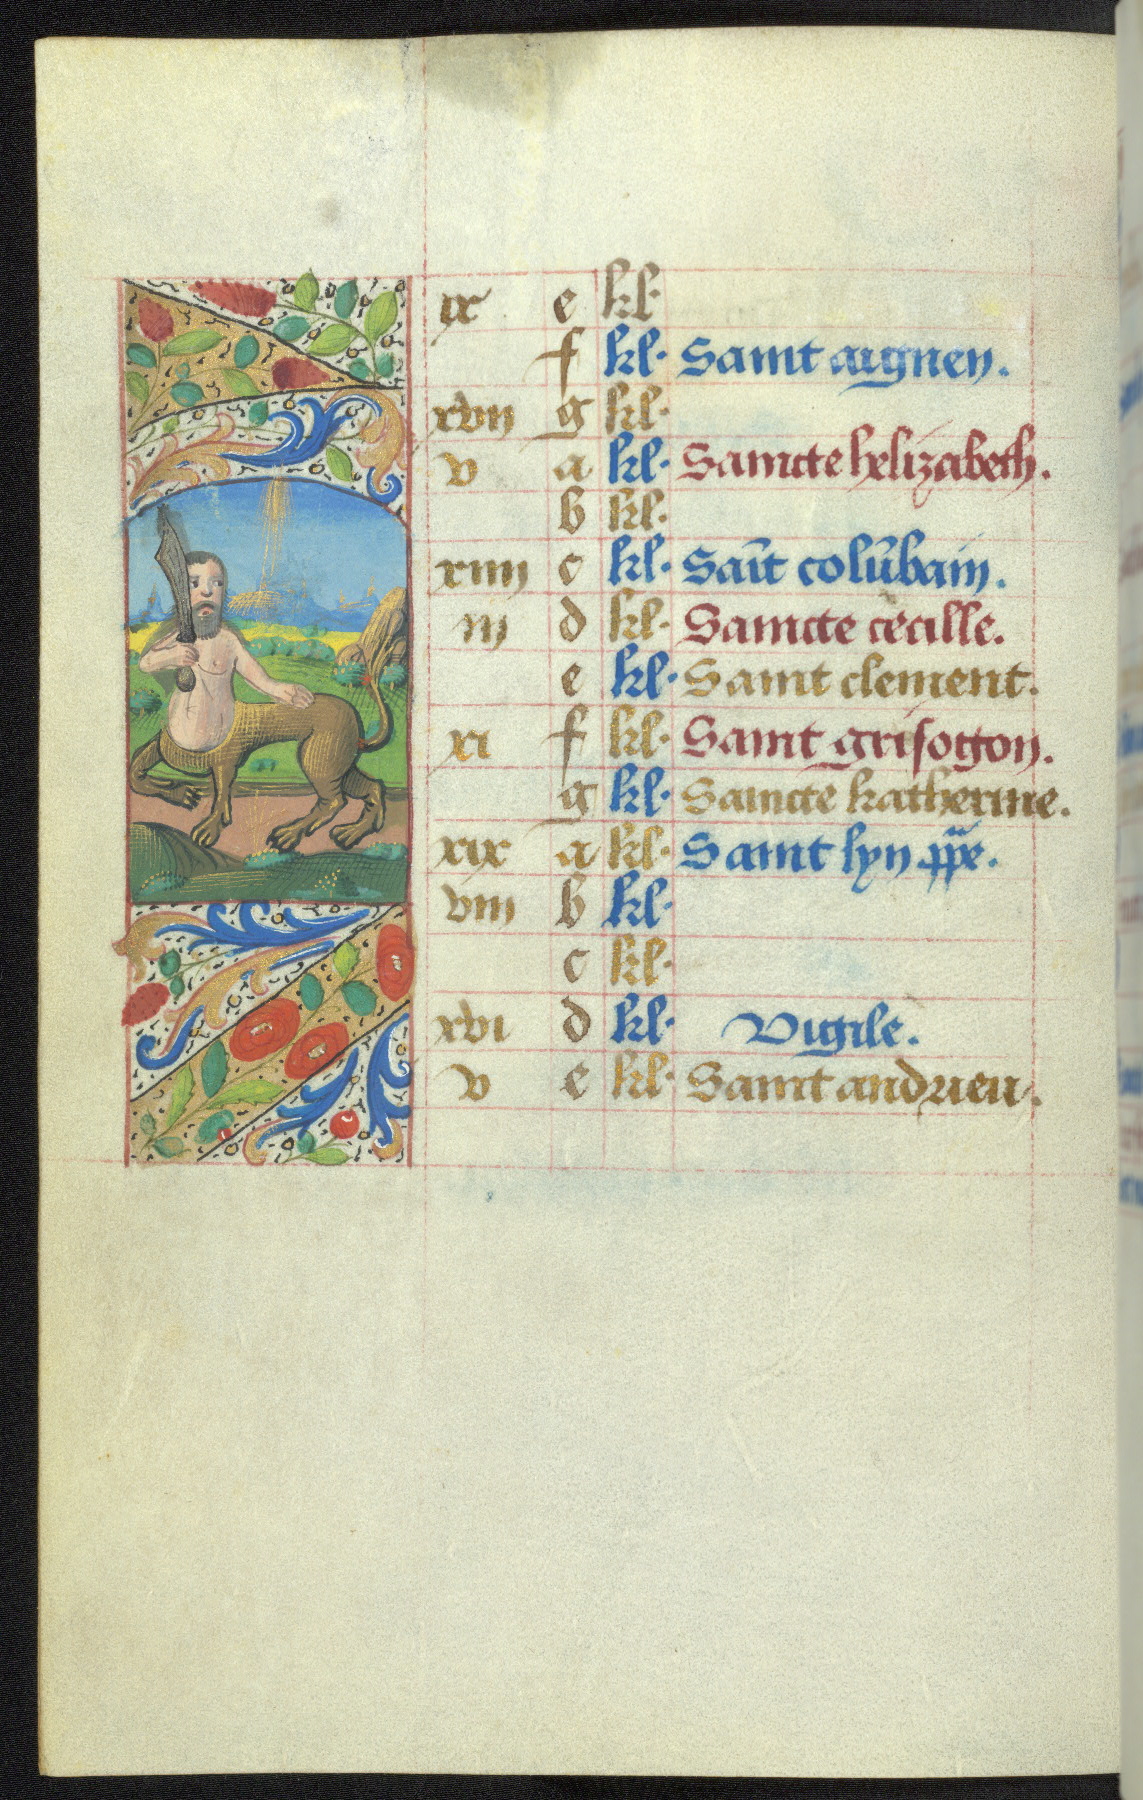 ix e kl.
f kl. Saint aignen.
xvii g kl.
v a kl. Saincte helizabeth.
b kl.
xiiii c kl. Sait colu̅bain.
iii d kl. Saincte cecille.
e kl. Saint clement.
xi f kl. Saint grisogon.
g kl. Saincte katherine.
xix a kl. Saint lyn ppe.
viii b kl.
c kl.
xvi d kl. Vigile.
v e kl. Saint andrieu.